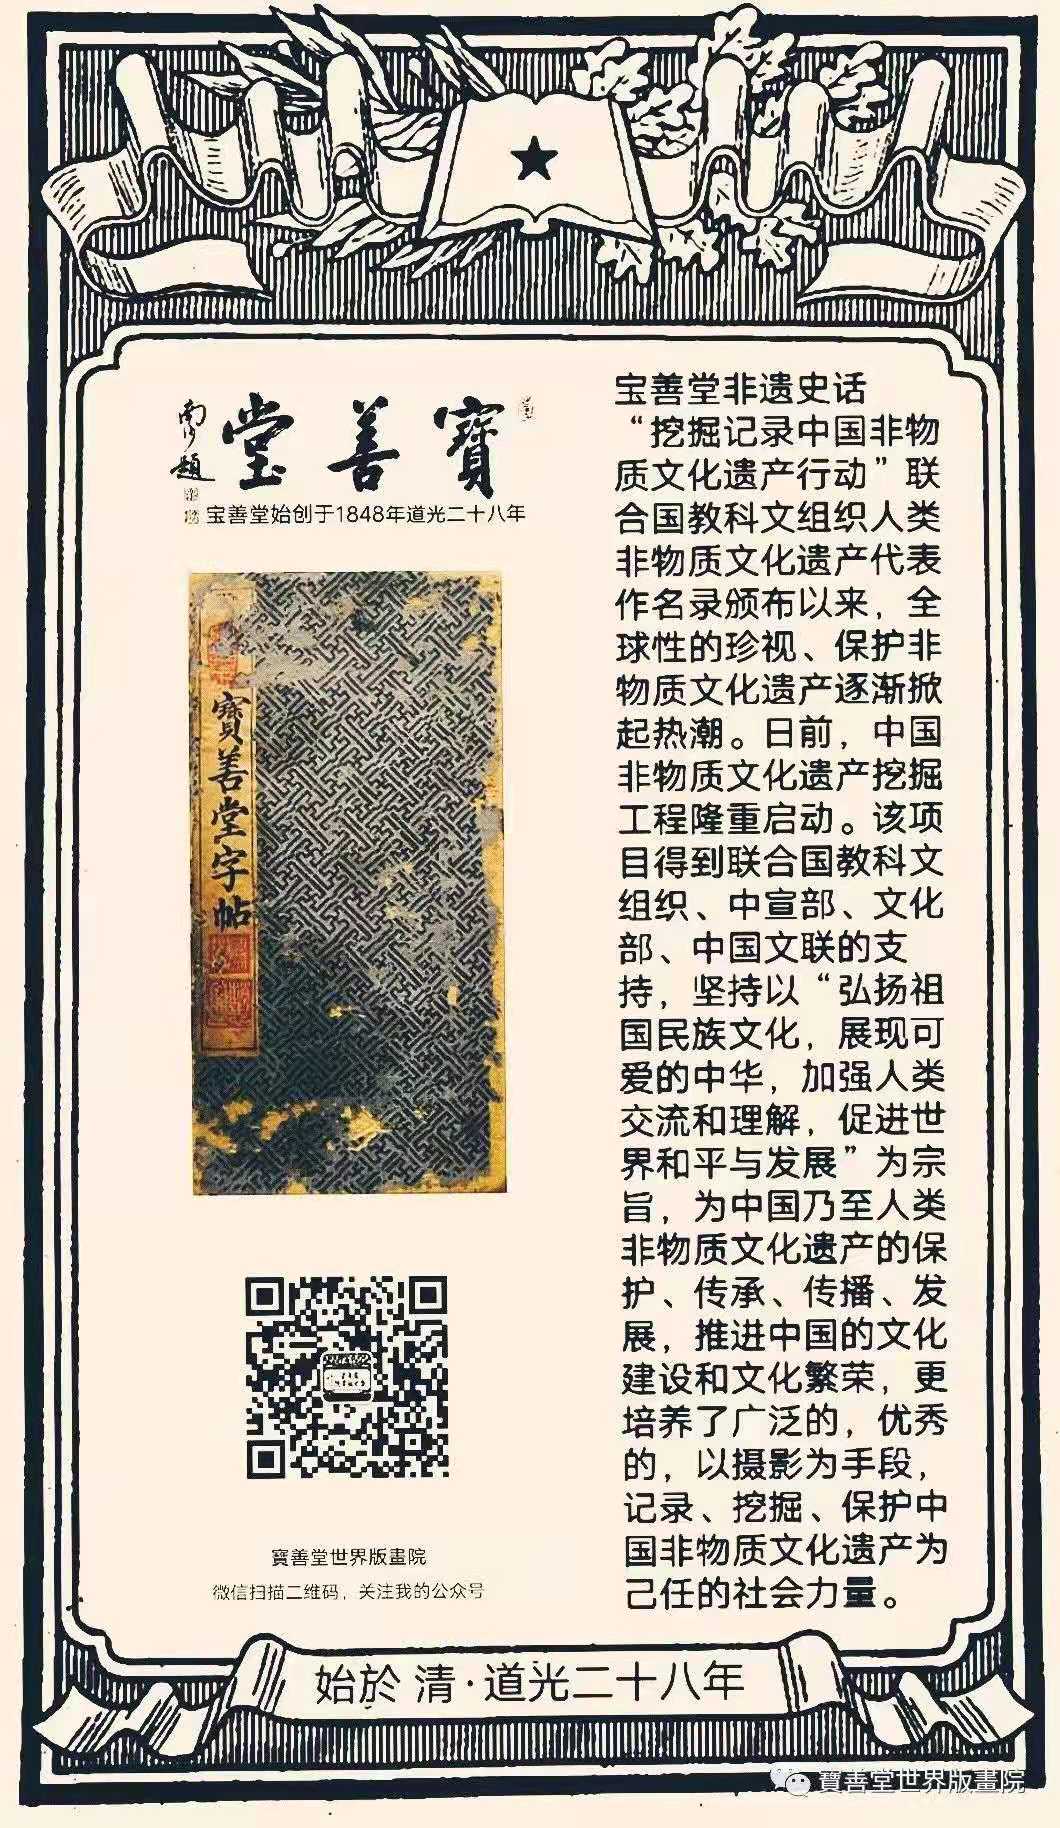 寶善堂
南沙題
宝善堂始创于1848年道光二十八年
寶善堂字帖
寶善堂世界版畫院
微信扫描二维码，关注我的公众号
宝善堂非遗史话
“挖掘记录中国非物
质文化遗产行动”联
合国教科文组织人类
非物质文化遗产代表
作名录颁布以来，全
球性的珍视、保护非
物质文化遗产逐渐掀
起热潮。日前，中国
非物质文化遗产挖掘
工程隆重启动。该项
目得到联合国教科文
组织、中宣部、文化
部、中国文联的支
持，坚持以“弘扬祖
国民族文化，展现可
爱的中华，加强人类
交流和理解，促进世
界和平与发展”为宗
旨，为中国乃至人类
非物质文化遗产的保
护、传承、传播、发
展，推进中国的文化
建设和文化繁荣，更
培养了广泛的，优秀
的，以摄影为手段，
记录、挖掘、保护中
国非物质文化遗产为
己任的社会力量。
始於 清·道光二十八年
寶善堂世界版畫院